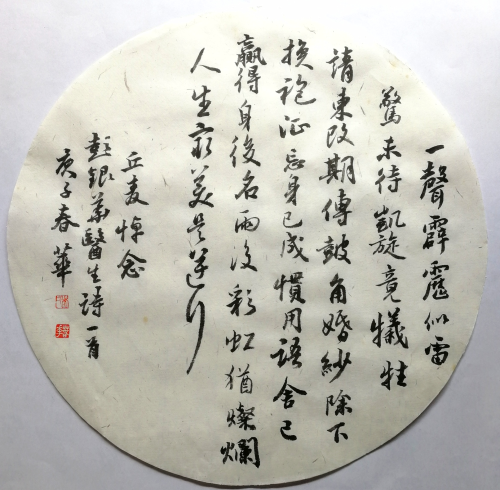 一聲霹靂似雷
驚未待凱旋竟犧牲
請柬改期傳鼓角婚紗除下
换袍征忘身已成慣用語舍己
贏得身後名雨後彩虹猶燦爛
人生最美是逆行
丘麦悼念
彭銀華醫生詩一首
庚子春華